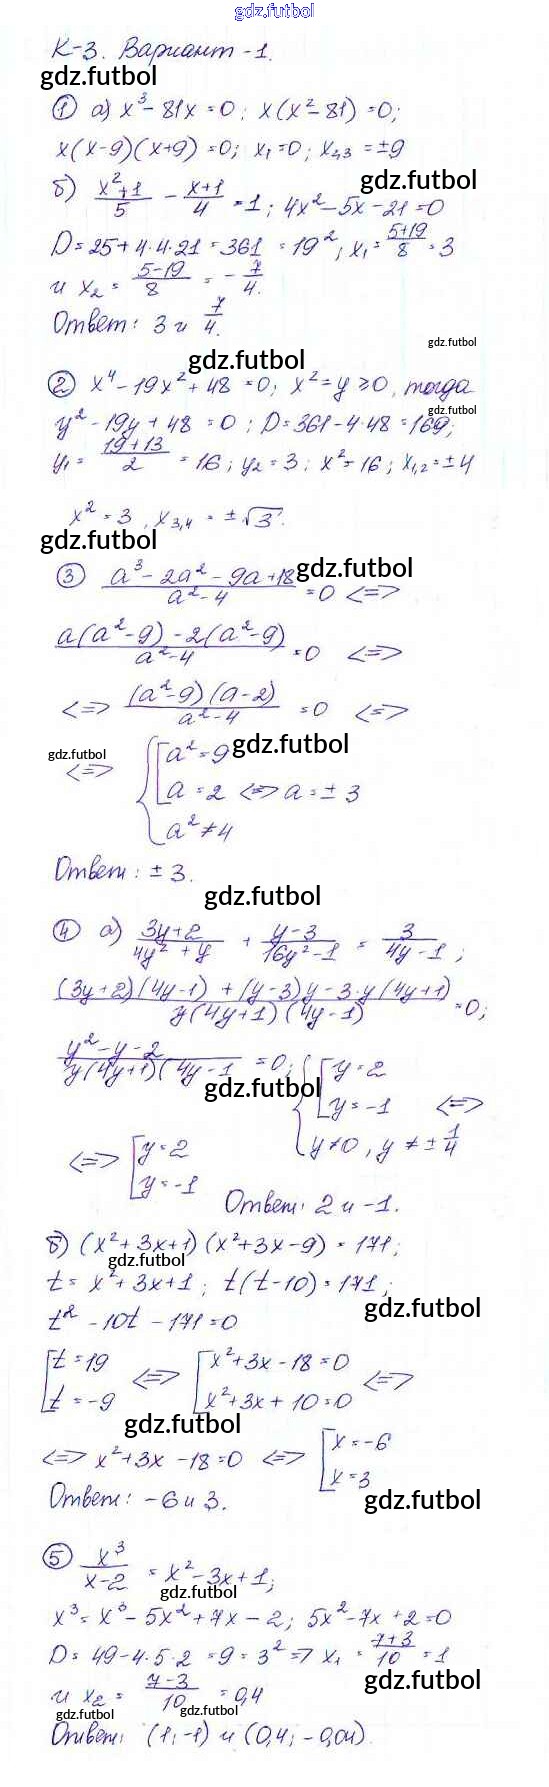 gdz.futbol
К-3. Вариант-1.
gdz.futbol
① а) x³ - 81x = 0; x(x² - 81) = 0;
x(x-9)(x+9) = 0; x₁ = 0; x₂,₃ = ±9
gdz.futbol
б) (x²+1)/5 - (x+1)/4 = 1; 4x² - 5x - 21 = 0
D = 25 + 4·4·21 = 361 = 19²; x₁ = (5+19)/8 = 3
и x₂ = (5-19)/8 = -7/4.
Ответ: 3 и 7/4.
gdz.futbol
gdz.futbol
② x⁴ - 19x² + 48 = 0; x² = y ≥ 0, тогда
gdz.futbol
y² - 19y + 48 = 0; D = 361 - 4·48 = 169;
y₁ = (19+13)/2 = 16; y₂ = 3; x² = 16; x₁,₂ = ±4
x² = 3, x₃,₄ = ±√3.
gdz.futbol
gdz.futbol
③ (a³ - 2a² - 9a + 18)/(a² - 4) = 0 <=>
(a(a²-9) - 2(a²-9))/(a²-4) = 0 <=>
<=> ((a²-9)(a-2))/(a²-4) = 0 <=>
gdz.futbol
gdz.futbol
<=> { [ a² = 9
a = 2 <=> a = ± 3
a² ≠ 4
Ответ: ± 3.
gdz.futbol
④ а) (3y+2)/(4y²+y) + (y-3)/(16y²-1) = 3/(4y-1);
((3y+2)(4y-1) + (y-3)y - 3·y(4y+1))/(y(4y+1)(4y-1)) = 0;
(y²-y-2)/(y(4y+1)(4y-1) = 0; { [ y = 2
gdz.futbol
y = -1 <=>
y ≠ 0, y ≠ ± 1/4
<=> [ y = 2
y = -1
Ответ: 2 и -1.
б) (x²+3x+1)(x²+3x-9) = 171;
gdz.futbol
t = x²+3x+1; t(t-10) = 171;
gdz.futbol
t² - 10t - 171 = 0
[ t = 19 <=> [ x²+3x-18 = 0 <=>
t = -9 x²+3x+10 = 0
gdz.futbol
<=> x²+3x-18 = 0 <=> [ x = -6
x = 3
Ответ: -6 и 3.
gdz.futbol
⑤ x³/(x-2) = x² - 3x + 1;
gdz.futbol
x³ = x³ - 5x² + 7x - 2; 5x² - 7x + 2 = 0
D = 49 - 4·5·2 = 9 = 3² => x₁ = (7+3)/10 = 1
gdz.futbol
и x₂ = (7-3)/10 = 0,4
gdz.futbol
gdz.futbol
Ответ: (1; -1) и (0,4; -0,04).